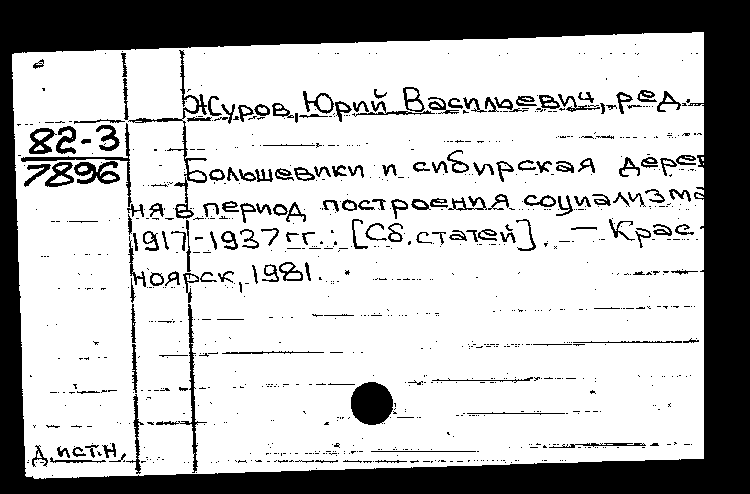 Журов, Юрий Васильевич, ред.
82-3
7896
Большевики и сибирская дерев
ня в период построения социализма
1917-1937 гг.: [Сб. статей]. — Крас-
ноярск, 1981.
Д. ист. н.